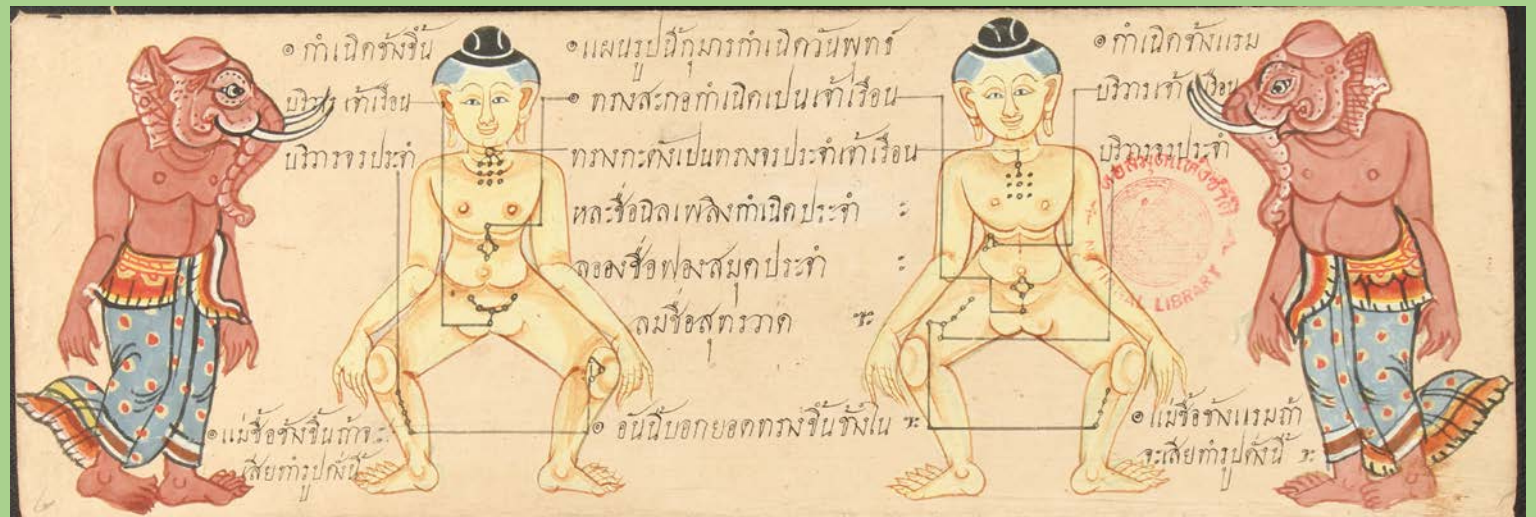 ๏ กำเนิดข้างขึ้น
บริวารเจ้าเรือน
บริวารจรประจำ
๏ แผนรูปนี้กุมารกำเนิดวันพุทธ์
๏ ทรางสะกอกำเนิดเปนเจ้าเรือน
ทรางกะดังเปนทรางจรประจำเจ้าเรือน
หละชื่อนิลเพลิงกำเนิดประจำ ะ
ลอองชื่อฟองสมุดประจำ ะ
ลมชื่อสุทรวาต ๚ะ
๏ อันนี้บอกยอดทรางขึ้นข้างใน ๚ะ
๏ กำเนิดข้างแรม
บริวารเจ้าเรือน
บริวารจรประจำ
๏ แม่ซื้อข้างขึ้นถ้าจะ
เสียทำรูปดั่งนี้
๏ แม่ซื้อข้างแรมถ้า
จะเสียทำรูปดังนี้ ๚ะ
หอสมุดแห่งชาติ
NATIONAL LIBRARY